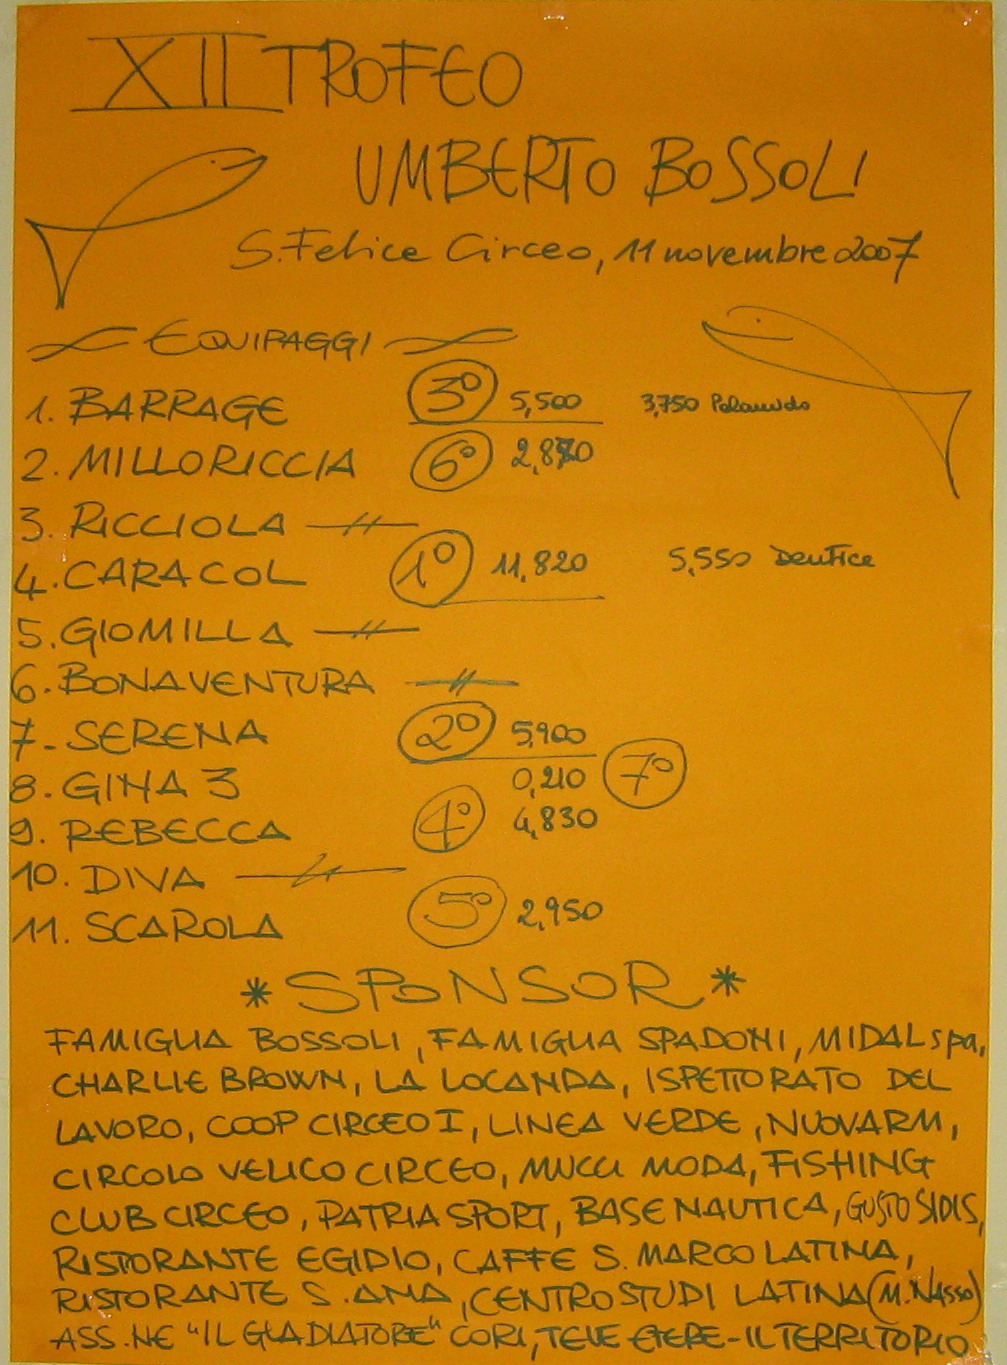 XII TROFEO
UMBERTO BOSSOLI
S. Felice Circeo, 11 novembre 2007
EQUIPAGGI
1. BARRAGE 3° 5,500 3,750
2. MILLORICCIA 6°
3. RICCIOLA
4. CARACOL 1° 11,820 5,550 Dentice
5. GIOMILLA
6. BONAVENTURA
7. SERENA 2° 5,900
8. GINA 3 0,210 7°
9. REBECCA 4° 4,830
10. DIVA
11. SCAROLA 5° 2,950
* SPONSOR *
FAMIGLIA BOSSOLI, FAMIGLIA SPADONI, MIDAL spa,
CHARLIE BROWN, LA LOCANDA, ISPETTORATO DEL
LAVORO, COOP CIRCEO I, LINEA VERDE, NUOVARM,
CIRCOLO VELICO CIRCEO, MUCCI MODA, FISHING
CLUB CIRCEO, PATRIA SPORT, BASE NAUTICA, GUSTO SIDIS,
RISTORANTE EGIDIO, CAFFE S. MARCO LATINA,
RISTORANTE S. CENTRO STUDI LATINA (M. NASSO)
ASS.NE "IL GLADIATORE" CORI, TELE ETERE - IL TERRITORIO